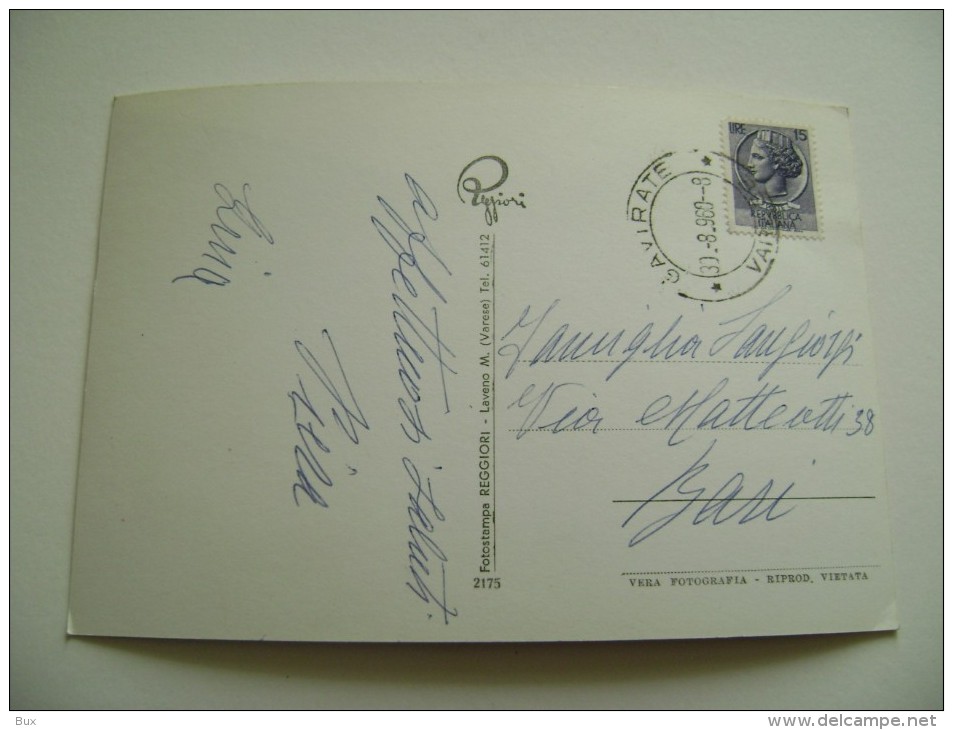 Affettuosi saluti
Lina
Reggiori
Fotostampa REGGIORI - Laveno M. (Varese) Tel. 61412
2175
LIRE 15
REPVBBLICA
ITALIANA
GAVIRATE
30.-8.960.-8
Famiglia Sangiorgi
Via Matteotti 38
Bari
VERA FOTOGRAFIA - RIPROD. VIETATA
Bux
www.delcampe.net